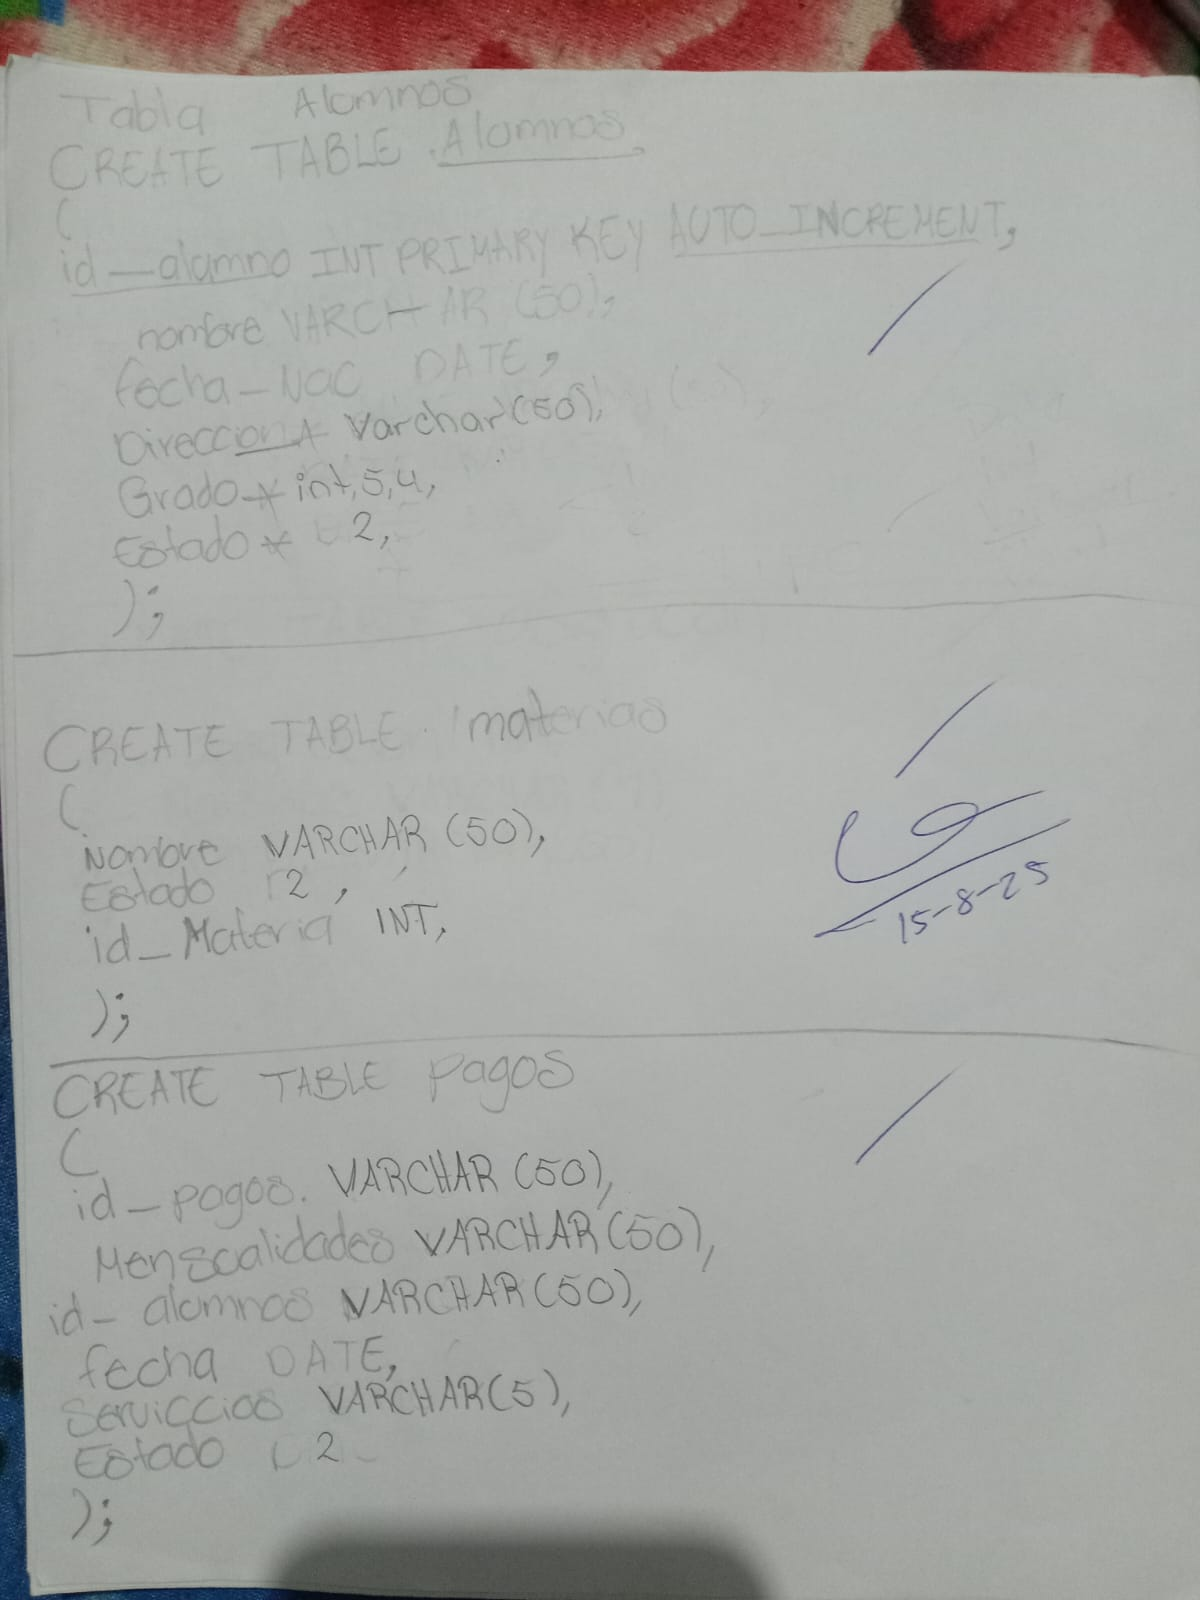 Tabla Alumnos
CREATE TABLE Alumnos
(
id_alumno INT PRIMARY KEY AUTO_INCREMENT,
nombre VARCHAR (50),
fecha_Nac DATE,
Direccion Varchar (50),
Grado * int, 5, 4,
Estado * 2,
);
CREATE TABLE materias
(
Nombre VARCHAR (50),
Estado 2,
id_Materia INT,
);
15-8-25
CREATE TABLE Pagos
(
id_pagos. VARCHAR (50),
Menscalidades VARCHAR (50),
id_alumnos VARCHAR (50),
fecha DATE,
Serviccios VARCHAR (5),
Estado 2
);